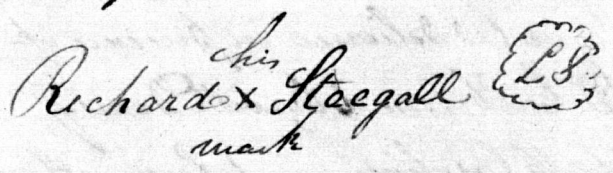 his
Richard X Steegall LS
mark